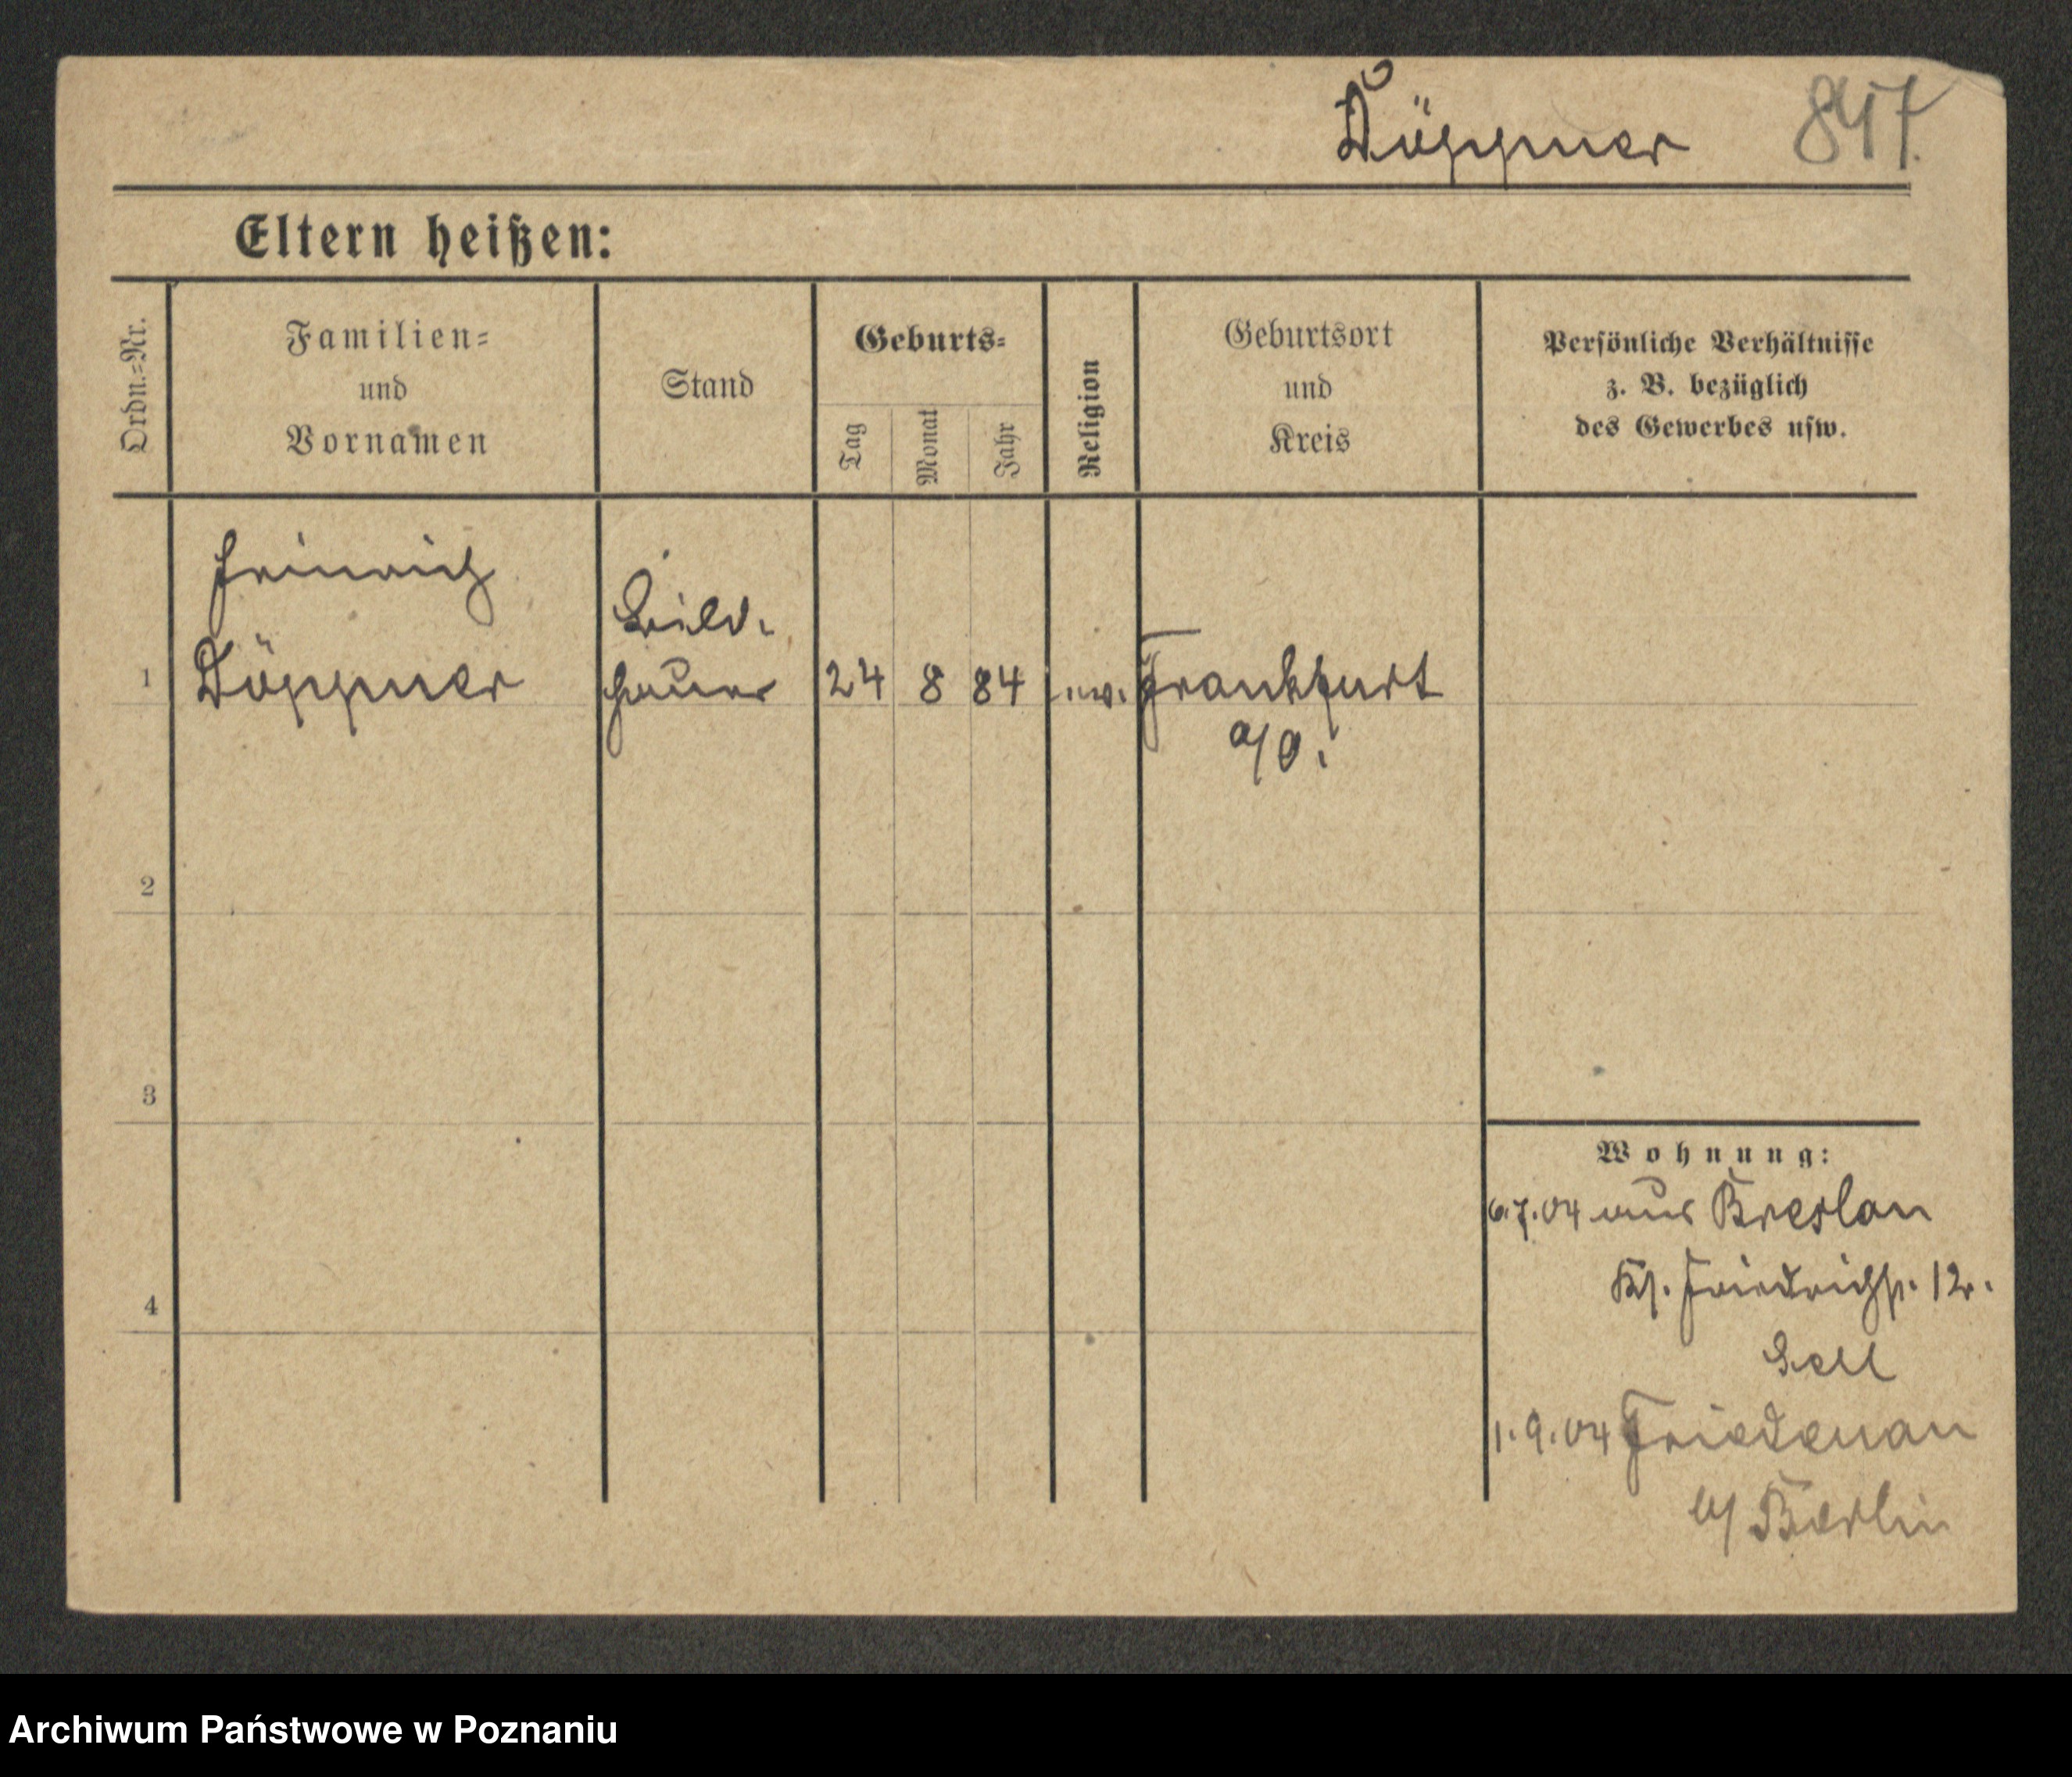 Döppner 847.
Eltern heißen:
Ordn.=Nr.
Familien=
und
Vornamen
Stand
Geburts=
Tag
Monat
Jahr
Religion
Geburtsort
und
Kreis
Persönliche Verhältnisse
z. B. bezüglich
des Gewerbes usw.
Heinrich
Bild.
1 Döppner hauer 24 8 84 ev. Frankfurt
a/O.
2
3
4
Wohnung:
6.7.04 aus Breslau
Kl. Friedrichstr. 12.
1.9.04 Friedenau
b/ Berlin
Archiwum Państwowe w Poznaniu